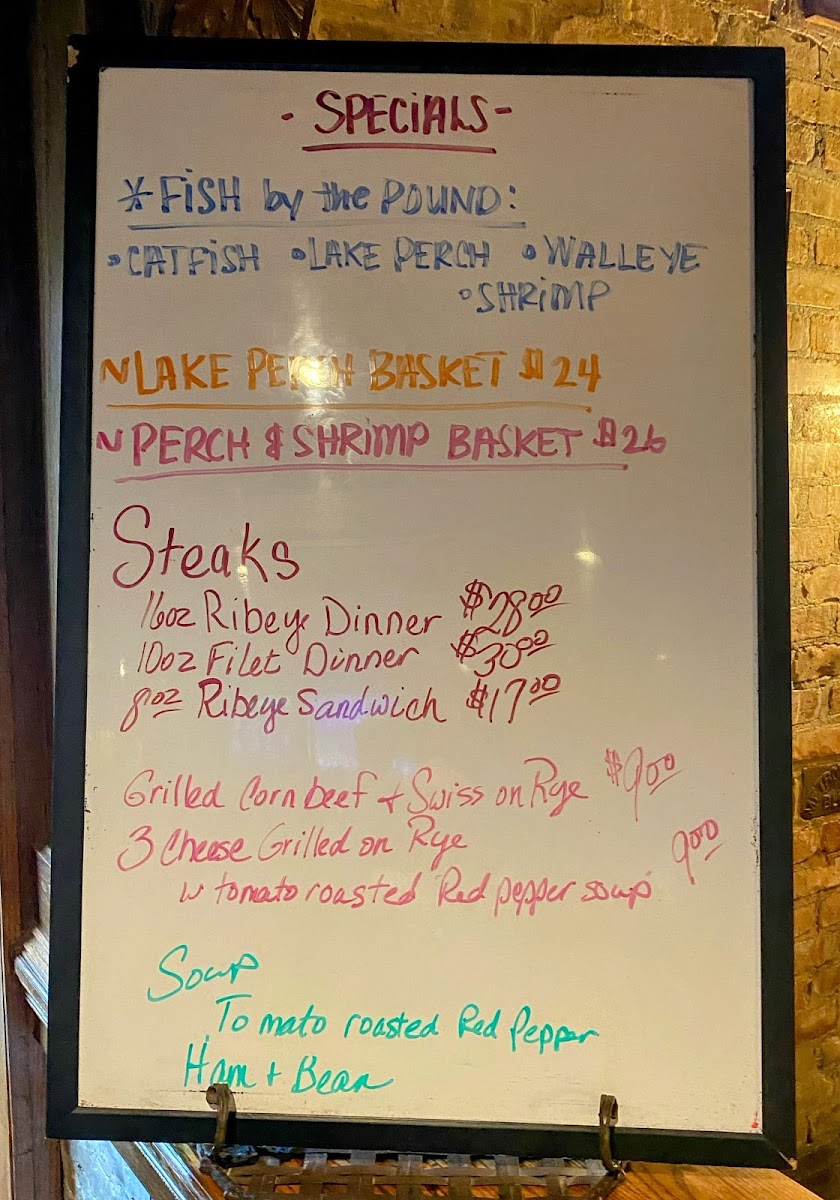 - SPECiALS -
* FiSH by the POUND:
• CATFiSH • LAKE PERCH • WALLEYE
• SHRiMP
~ LAKE PERCH BASKET $24
~ PERCH & SHRiMP BASKET $26
Steaks
16oz Ribeye Dinner $28.00
10oz Filet Dinner $30.00
8oz Ribeye Sandwich $17.00
Grilled Corn beef + Swiss on Rye $9.00
3 Cheese Grilled on Rye
w tomato roasted Red pepper soup 9.00
Soup
Tomato roasted Red Pepper
Ham + Bean